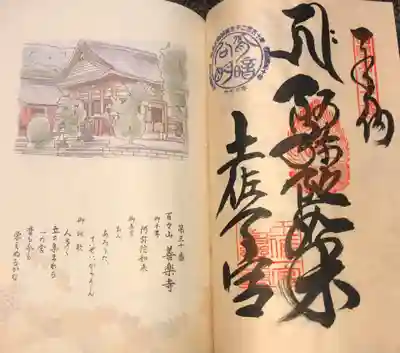 奉納
阿弥陀如来
第三十番
百々山 善楽寺
御本尊
阿弥陀如来
御真言
おん
あみりた
ていぜいからうん
御詠歌
人多く
立ち集まれる
一の宮
昔も今も
栄えぬるかな